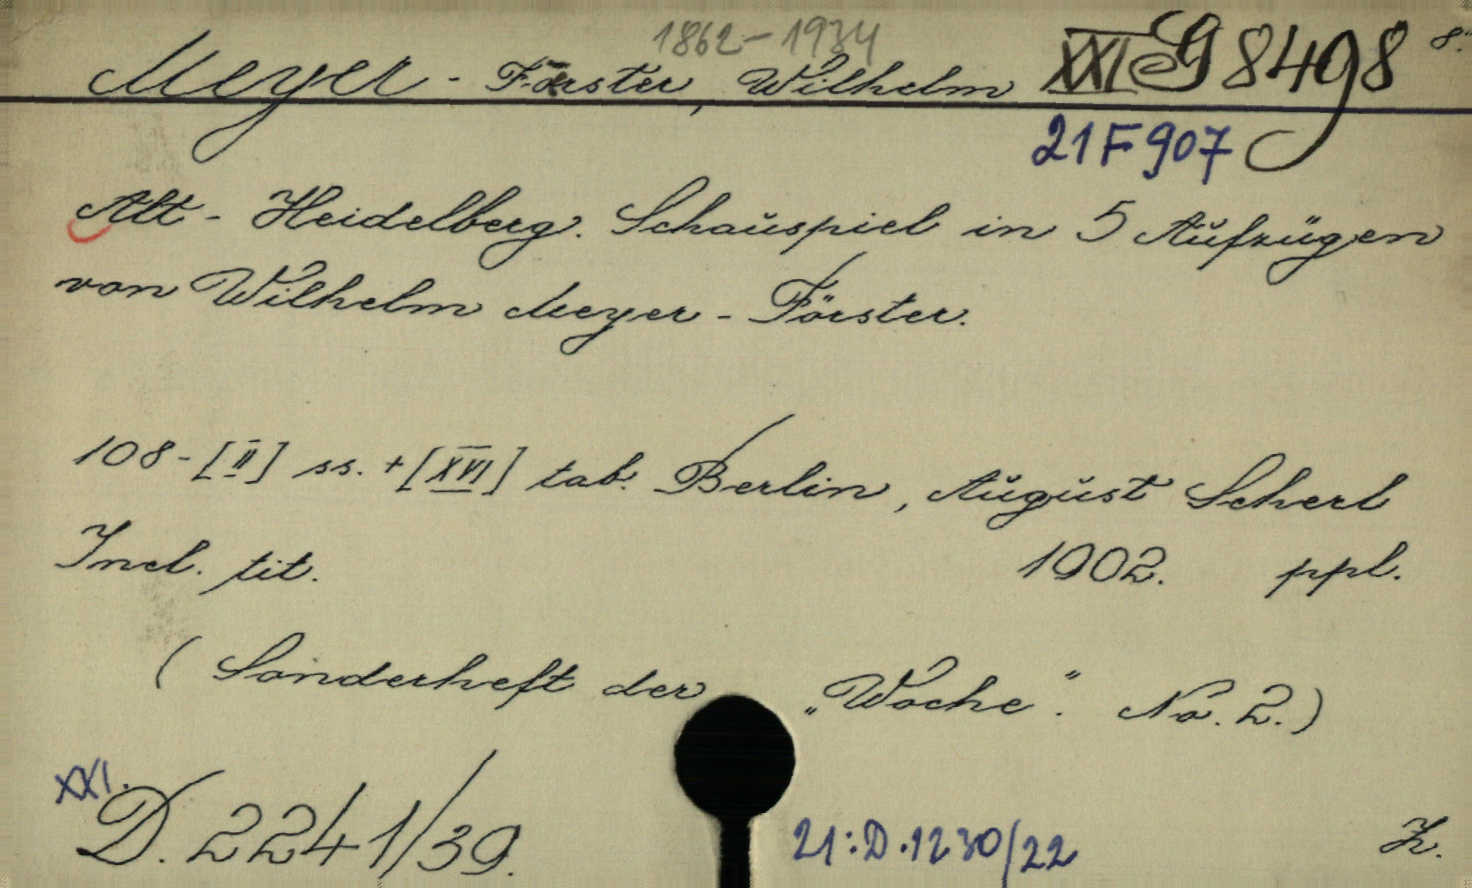 1862-1934
Meyer-Förster, Wilhelm XXI G 8498 8º
21 F 907
Alt-Heidelberg. Schauspiel in 5 Aufzügen
von Wilhelm Meyer-Förster.
108-[II] ss. + [XVI] tab. Berlin, August Scherl
Incl. tit. 1902. ppl.
(Sonderheft der „Woche". No. 2.)
XXI.
D. 2241/39. 21:D.1230/22